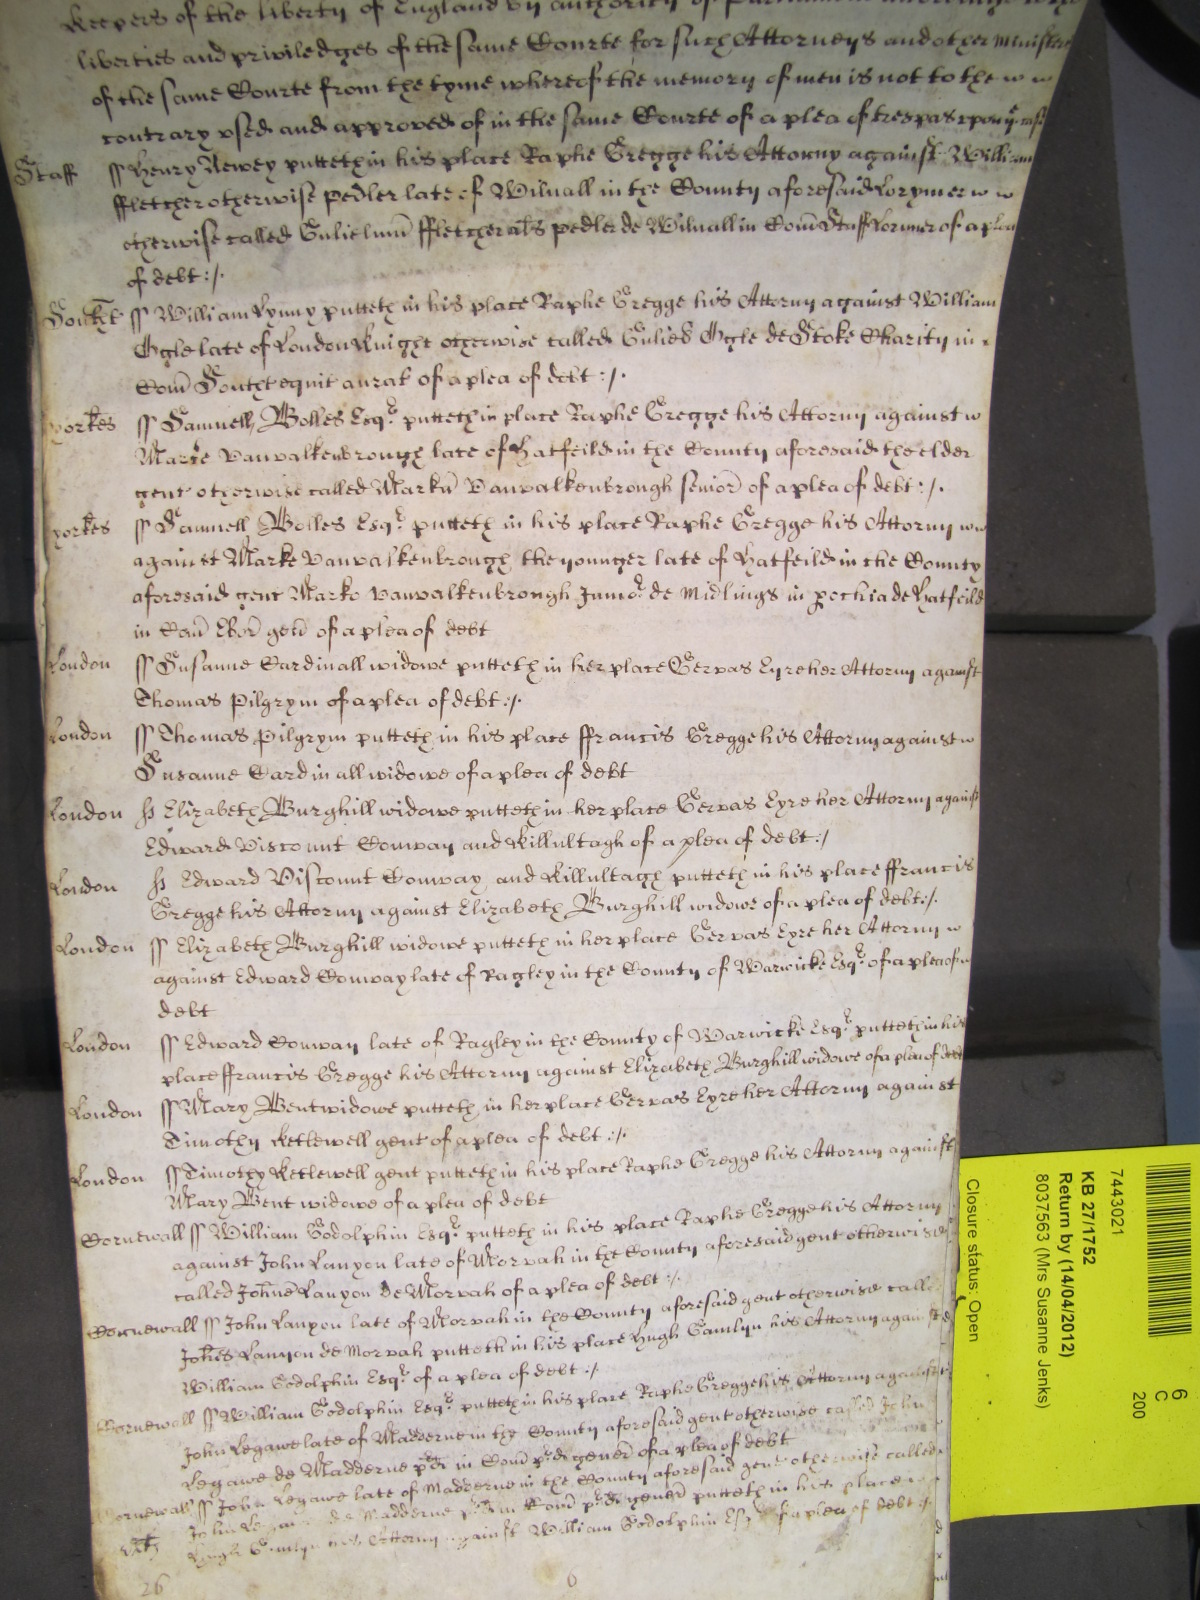 keepers of the liberty of England by authority of Parliament
liberties and priviledges of the same Courte for such Attorneys and other Ministers
of the same Courte from the tyme whereof the memory of men is not to the
contrary vsed and approved of in the same Courte of a plea of trespas vpon ye case
Staff ss Henry Newey putteth in his place Raphe Gregge his Attorny against William
ffletcher otherwise Pedler late of Wilnall in the County aforesaid Lorymer
otherwise called Gulielmu ffletcher als Pedler de Wilnall in Com Staff Lorimer of a plea
of debt :/.
Southt ss William Lynny putteth in his place Raphe Gregge his Attorny against William
Ogle late of London Knight otherwise called Gulieb Ogle de Stoke Charity in
Com Southt equit aurat of a plea of debt :/.
yorkes ss Samuell Bolles Esqr putteth in place Raphe Gregge his Attorny against
Marke Vanvalkenbrough late of Hatfeild in the County aforesaid the elder
gent otherwise called Marku Vanvalkenbrough senior of a plea of debt :/.
yorkes ss Samuell Bolles Esqr putteth in his place Raphe Gregge his Attorny
against Marke Vanvalkenbrough the younger late of Hatfeild in the County
aforesaid gent Marko Vanvalkenbrough Junior de Midlings in pochia de Hatfeild
in Com Ebor gen of a plea of debt
London ss Susanne Cardinall widowe putteth in her place Gervas Eyre her Attorny against
Thomas Pilgrym of a plea of debt :/.
London ss Thomas Pilgrym putteth in his place ffrancis Gregge his Attorny against
Susanne Cardinall widowe of a plea of debt
London ss Elizabeth Burghill widowe putteth in her place Gervas Eyre her Attorny against
Edward Viscount Conway and Killultagh of a plea of debt :/
London ss Edward Viscount Conway and Killultagh putteth in his place ffrancis
Gregge his Attorny against Elizabeth Burghill widowe of a plea of debt :/.
London ss Elizabeth Burghill widowe putteth in her place Gervas Eyre her Attorny
against Edward Conway late of Ragley in the County of Warwicke Esqr of a plea of
debt
London ss Edward Conway late of Ragley in the County of Warwicke Esqr putteth in his
place ffrancis Gregge his Attorny against Elizabeth Burghill widowe of a plea of debt
London ss Mary Bent widowe putteth in her place Gervas Eyre her Attorny against
Timothy Kettewell gent of a plea of debt :/.
London ss Timothy Kettewell gent putteth in his place Raphe Gregge his Attorny against
Mary Bent widowe of a plea of debt
Cornewall ss William Godolphin Esqr putteth in his place Raphe Gregge his Attorny
against John Lanyon late of Morvah in the County aforesaid gent otherwise
called Johne Lanyon de Morvah of a plea of debt :/.
Cornewall ss John Lanyon late of Morvah in the County aforesaid gent otherwise called
Johes Lanyon de Morvah putteth in his place Hugh Gamlyn his Attorny against
William Godolphin Esqr of a plea of debt :/
Cornewall ss William Godolphin Esqr putteth in his place Raphe Gregge his Attorny against
John Legawe late of Madderne in the County aforesaid gent otherwise called John
Legawe de Madderne pd in Com pd gener of a plea of debt
Cornewall ss John Legawe late of Madderne in the County aforesaid gent otherwise called
John de Madderne pd in Com pd gener putteth in his place
Hugh Gamlyn his Attorny against William Godolphin Esqr of a plea of debt :/.
26
6
6
C
200
7443021
KB 27/1752
Return by (14/04/2012)
8037563 (Mrs Susanne Jenks)
Closure status: Open